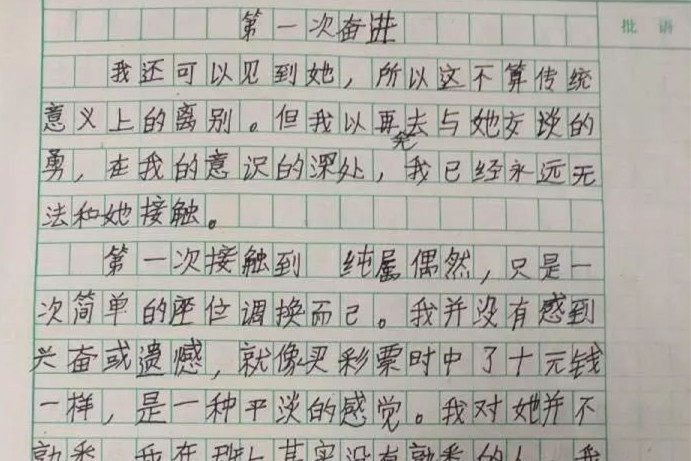 第一次奋进
批语
我还可以见到她，所以这不算传统
意义上的离别。但我以再去与她交谈的
勇，在我的意识的深处，我已经永远无
法和她接触。
第一次接触到 纯属偶然，只是一
次简单的座位调换而已。我并没有感到
兴奋或遗憾，就像买彩票时中了十元钱
一样，是一种平淡的感觉。我对她并不
熟悉，我在班上其实没有熟悉的人，我